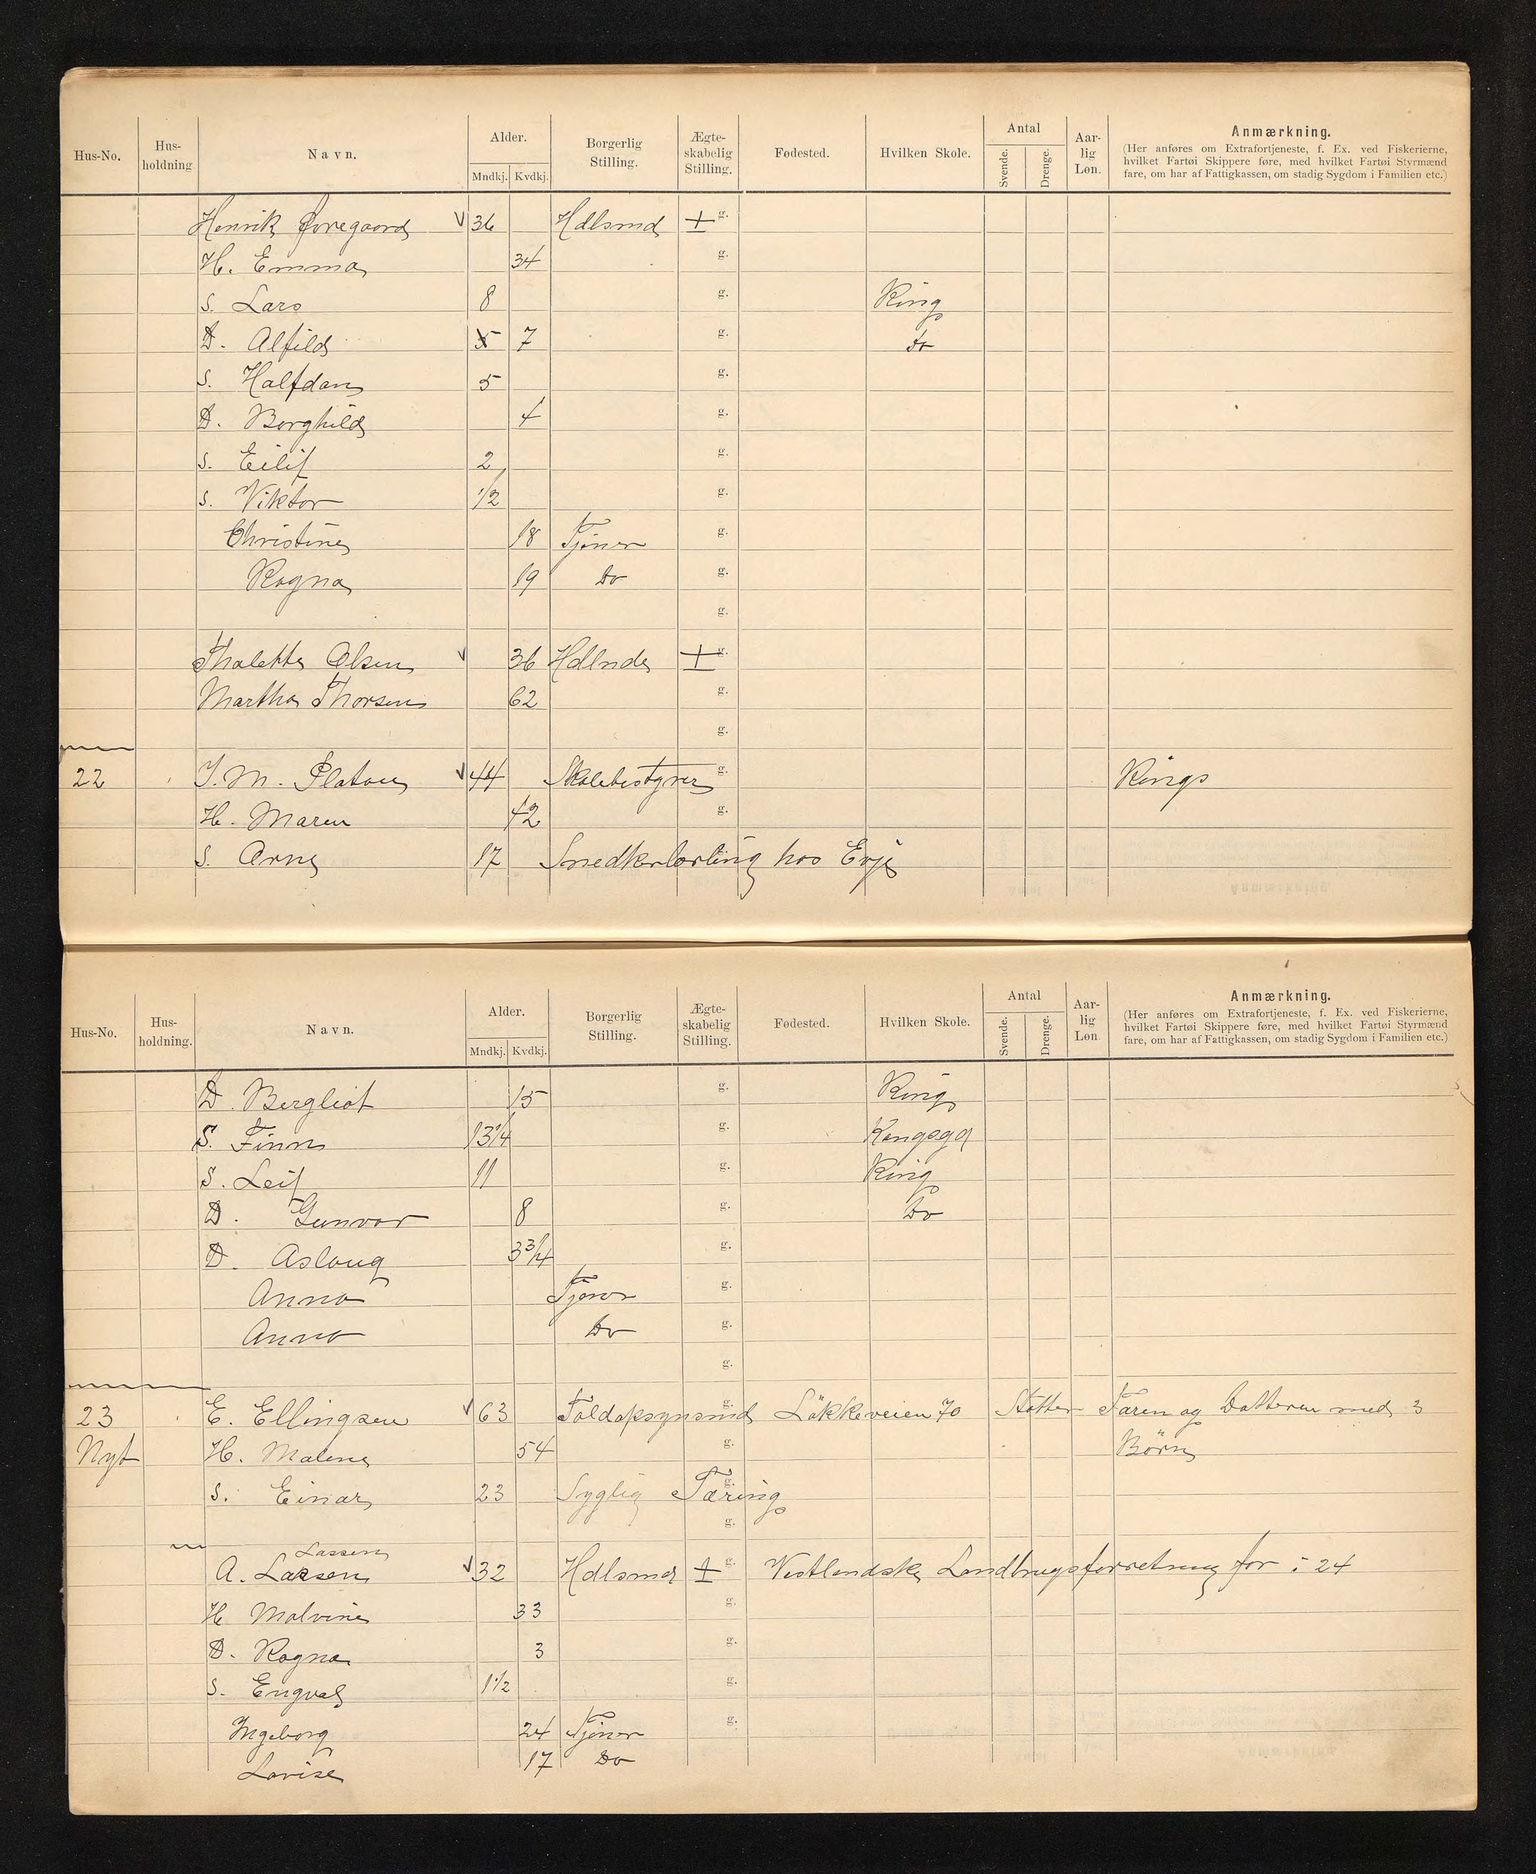 Hus-No. Hus-holdning Navn. Alder. Mndkj. Kvdkj. Borgerlig Stilling. Ægte-skabelig Stilling. Fødested. Hvilken Skole. Antal Svende. Drenge. Aar-lig Løn. Anmærkning.
(Her anføres om Extrafortjeneste, f. Ex. ved Fiskerierne,
hvilket Fartøi Skippere føre, med hvilket Fartøi Styrmænd
fare, om har af Fattigkassen, om stadig Sygdom i Familien etc.)
Henrik 36 Hdlsmd g.
H. Emma 34 g.
S. Lars 8 g. Ring
D. Alfild 5 7 g. do
S. Halfdan 5 g.
D. Borghild 4 g.
S. Eilif 2 g.
S. Viktor 1/2 g.
Christine 18 Tjener g.
Ragna 19 Do g.
g.
Thalette Olsen 36 Hdlnde g.
Martha Thorsen 62 g.
g.
22 J. M. Platou 44 Skolebestyrer g. Rings
H. Maren 42 g.
S. Arne 17 Snedkerlærling hos Evje
Hus-No. Hus-holdning. Navn. Alder. Mndkj. Kvdkj. Borgerlig Stilling. Ægte-skabelig Stilling. Fødested. Hvilken Skole. Antal Svende. Drenge. Aar-lig Løn Anmærkning.
(Her anføres om Extrafortjeneste, f. Ex. ved Fiskerierne,
hvilket Fartøi Skippere føre, med hvilket Fartøi Styrmænd
fare, om har af Fattigkassen, om stadig Sygdom i Familien etc.)
D. Bergliot 15 g. Ring
S. Finn 13 1/4 g. Kongsgd
S. Leif 11 g. Ring
D. Gunvor 8 g. Do
D. Aslaug 3 3/4 g.
Anna Tjener g.
Anna Do g.
g.
23 E. Ellingsen 63 Toldopsynsmd g. Løkkeveien 70 Støtter Faren og Datteren med 3
Nyt H. Malene 54 g. Børn
S. Einar 23 Syglig Tæring g.
g.
Lassen
A. Larsen 32 Hdlsmd g. Vestlandske Landbrugsforretning for i 24
H Malvine 33 g.
D. Ragna 3 g.
S. Engval 1 1/2 g.
Ingeborg 24 Tjener g.
Lovise 17 Do